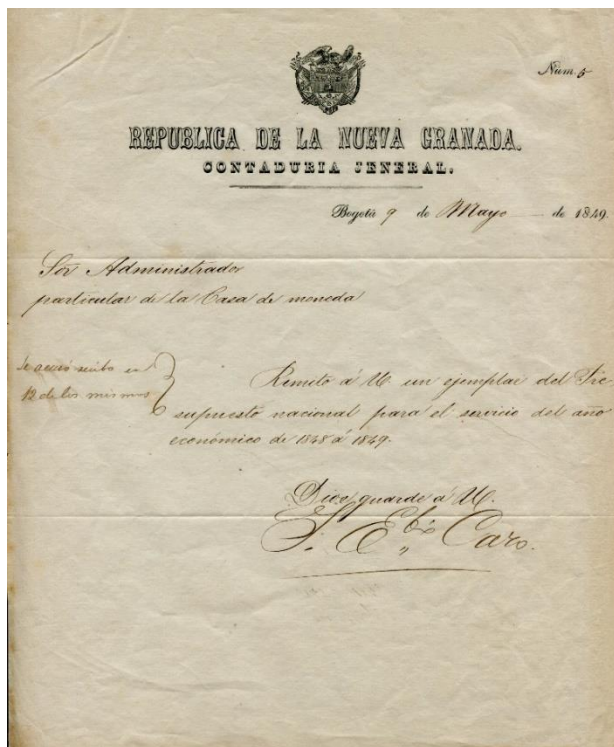 Núm. 5
REPUBLICA DE LA NUEVA GRANADA.
CONTADURIA JENERAL.
Bogotá 9 de Mayo de 1849.
Sor Administrador
particular de la Casa de moneda
Se acusó recibo en
12 de los mismos
Remito á U. un ejemplar del Pre
supuesto nacional para el servicio del año
económico de 1848 á 1849.
Dios guarde á U.
J. Ebio Caro.